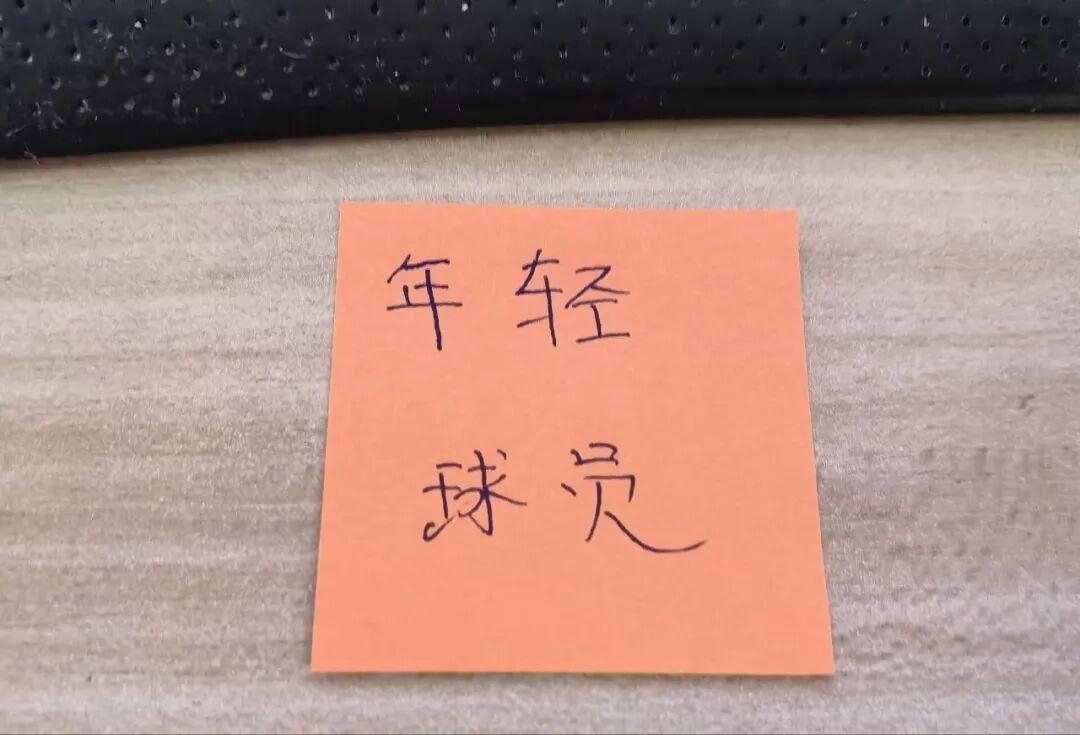 年轻
球员